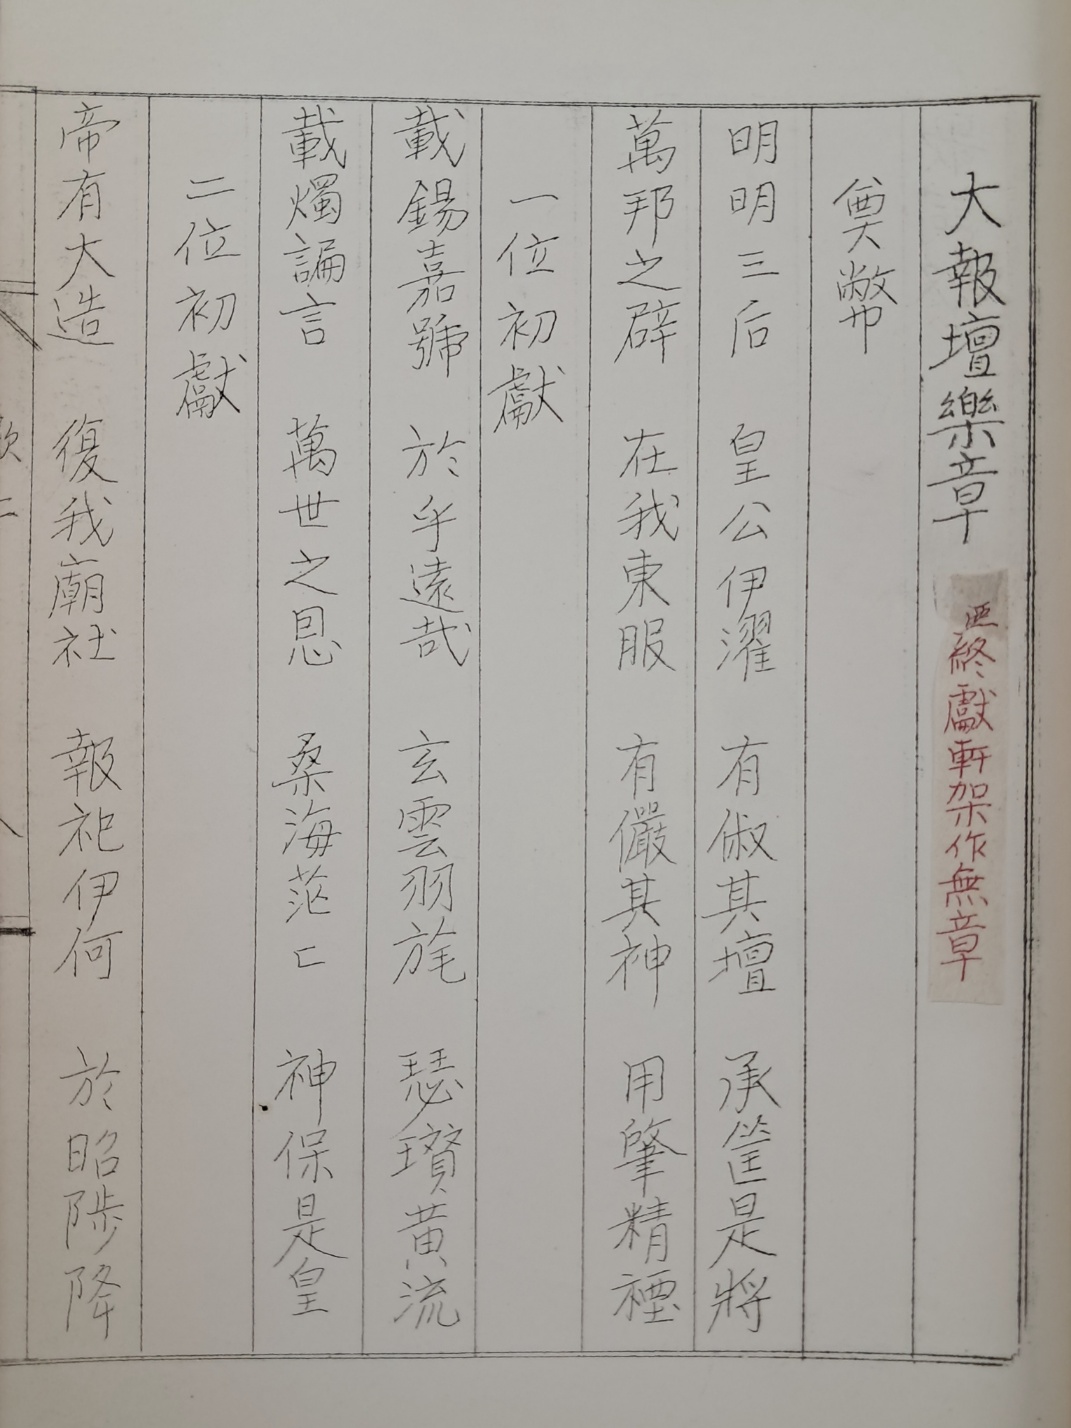 大報壇樂章 亞終獻軒架作無章
奠幣
明明三后 皇公伊濯 有俶其壇 承筐是將
萬邦之辟 在我東服 有儼其神 用肇精禋
一位初獻
載錫嘉號 於乎遠哉 玄雲羽旄 瑟瓚黃流
載燭諞言 萬世之恩 桑海茫〻 神保是皇
二位初獻
帝有大造 復我廟社 報祀伊何 於昭陟降